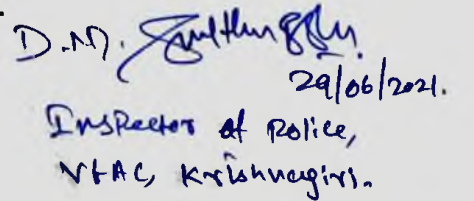 D.M.
29/06/2021.
Inspector of Police,
V&AC, Krishnagiri.